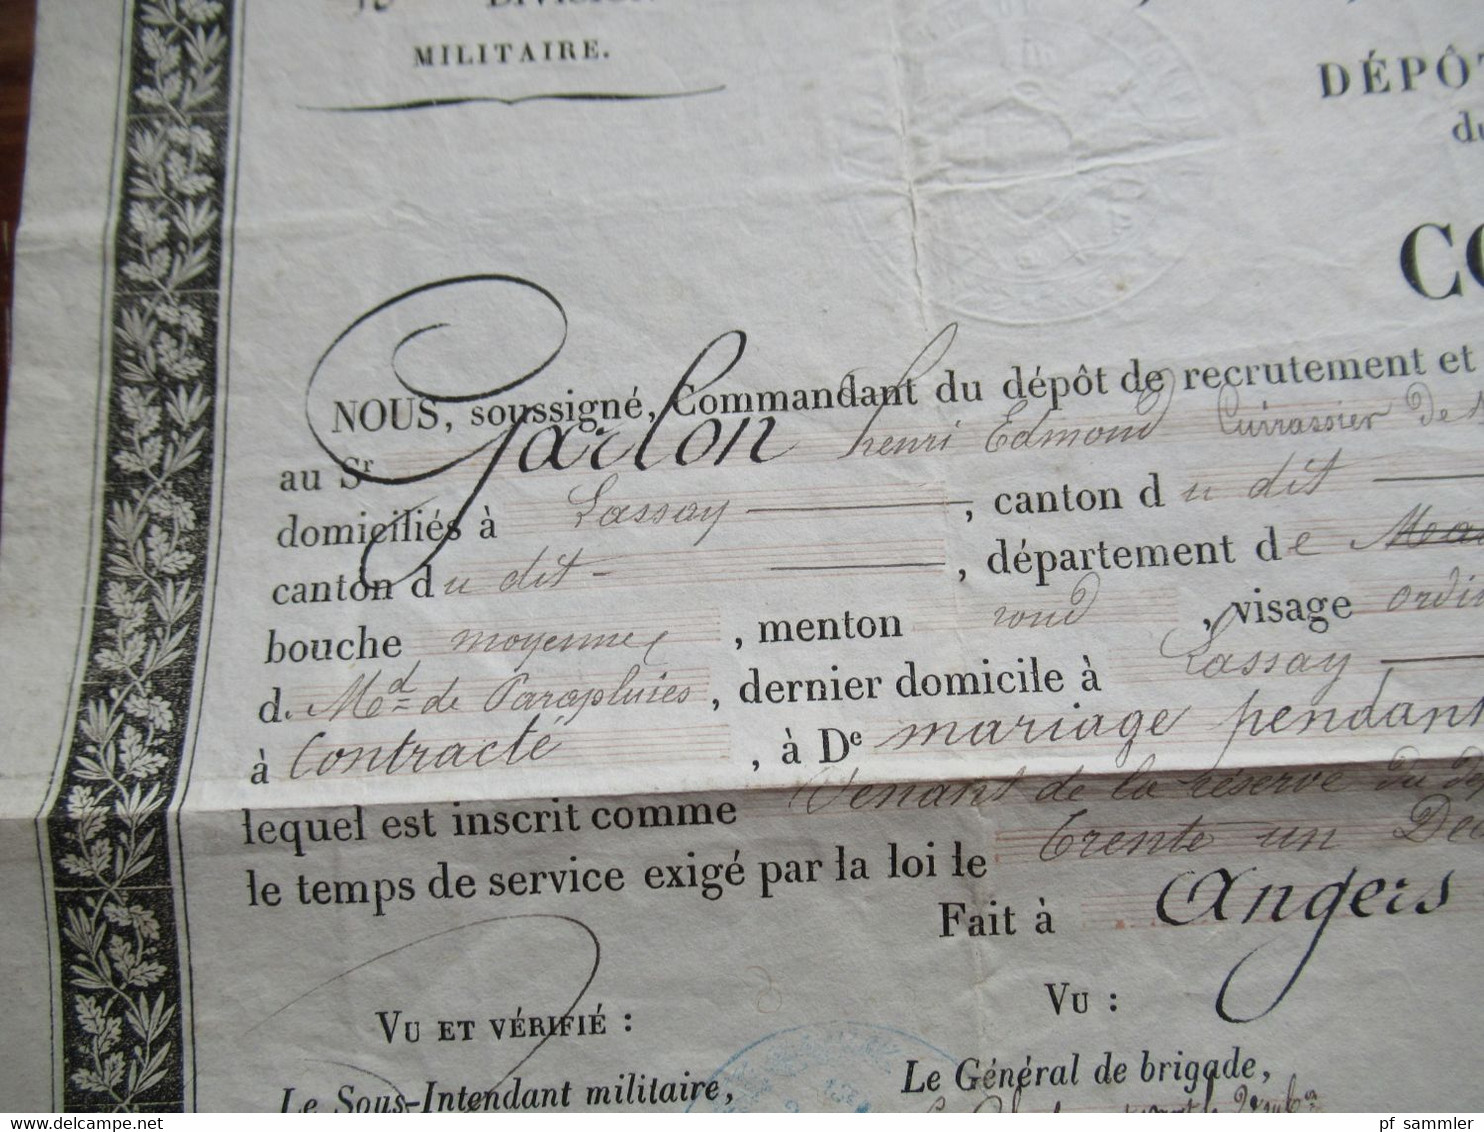 DIVISION
MILITAIRE.
DÉPÔT
du
CO
NOUS, soussigné, Commandant du dépôt de recrutement et
au Sr Garlon henri Edmond Cuirassier de
domiciliés à Lassay, canton du dit
canton du dit, département de
bouche moyenne, menton rond, visage ordin
d. Md de Parapluies, dernier domicile à Lassay
à Contracté, à De mariage pendant
lequel est inscrit comme Venant de la réserve du
le temps de service exigé par la loi le Trente un Dec
Fait à Angers
VU ET VÉRIFIÉ :
VU :
Le Sous-Intendant militaire,
Le Général de brigade,
pf_sammler
delcampe.net